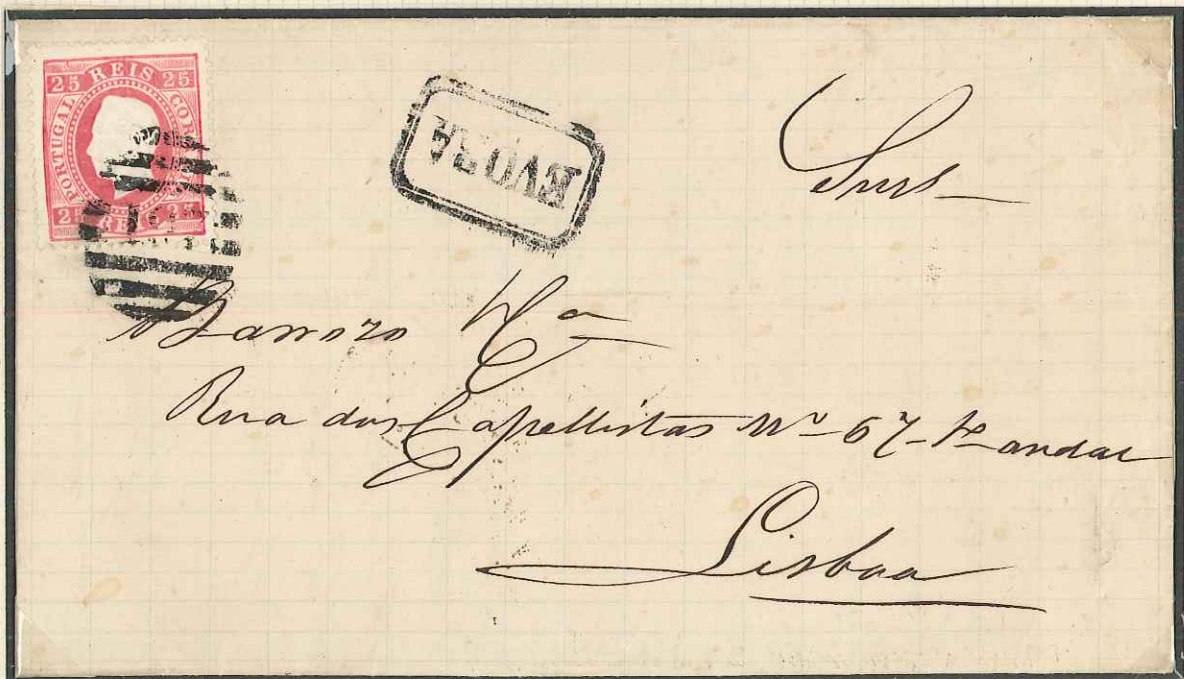 25 REIS 25
PORTUGAL
25 REIS 25
EVORA
Snrs
Barrozo & Cª
Rua dos Capellistas Nº 67-1º andar
Lisboa